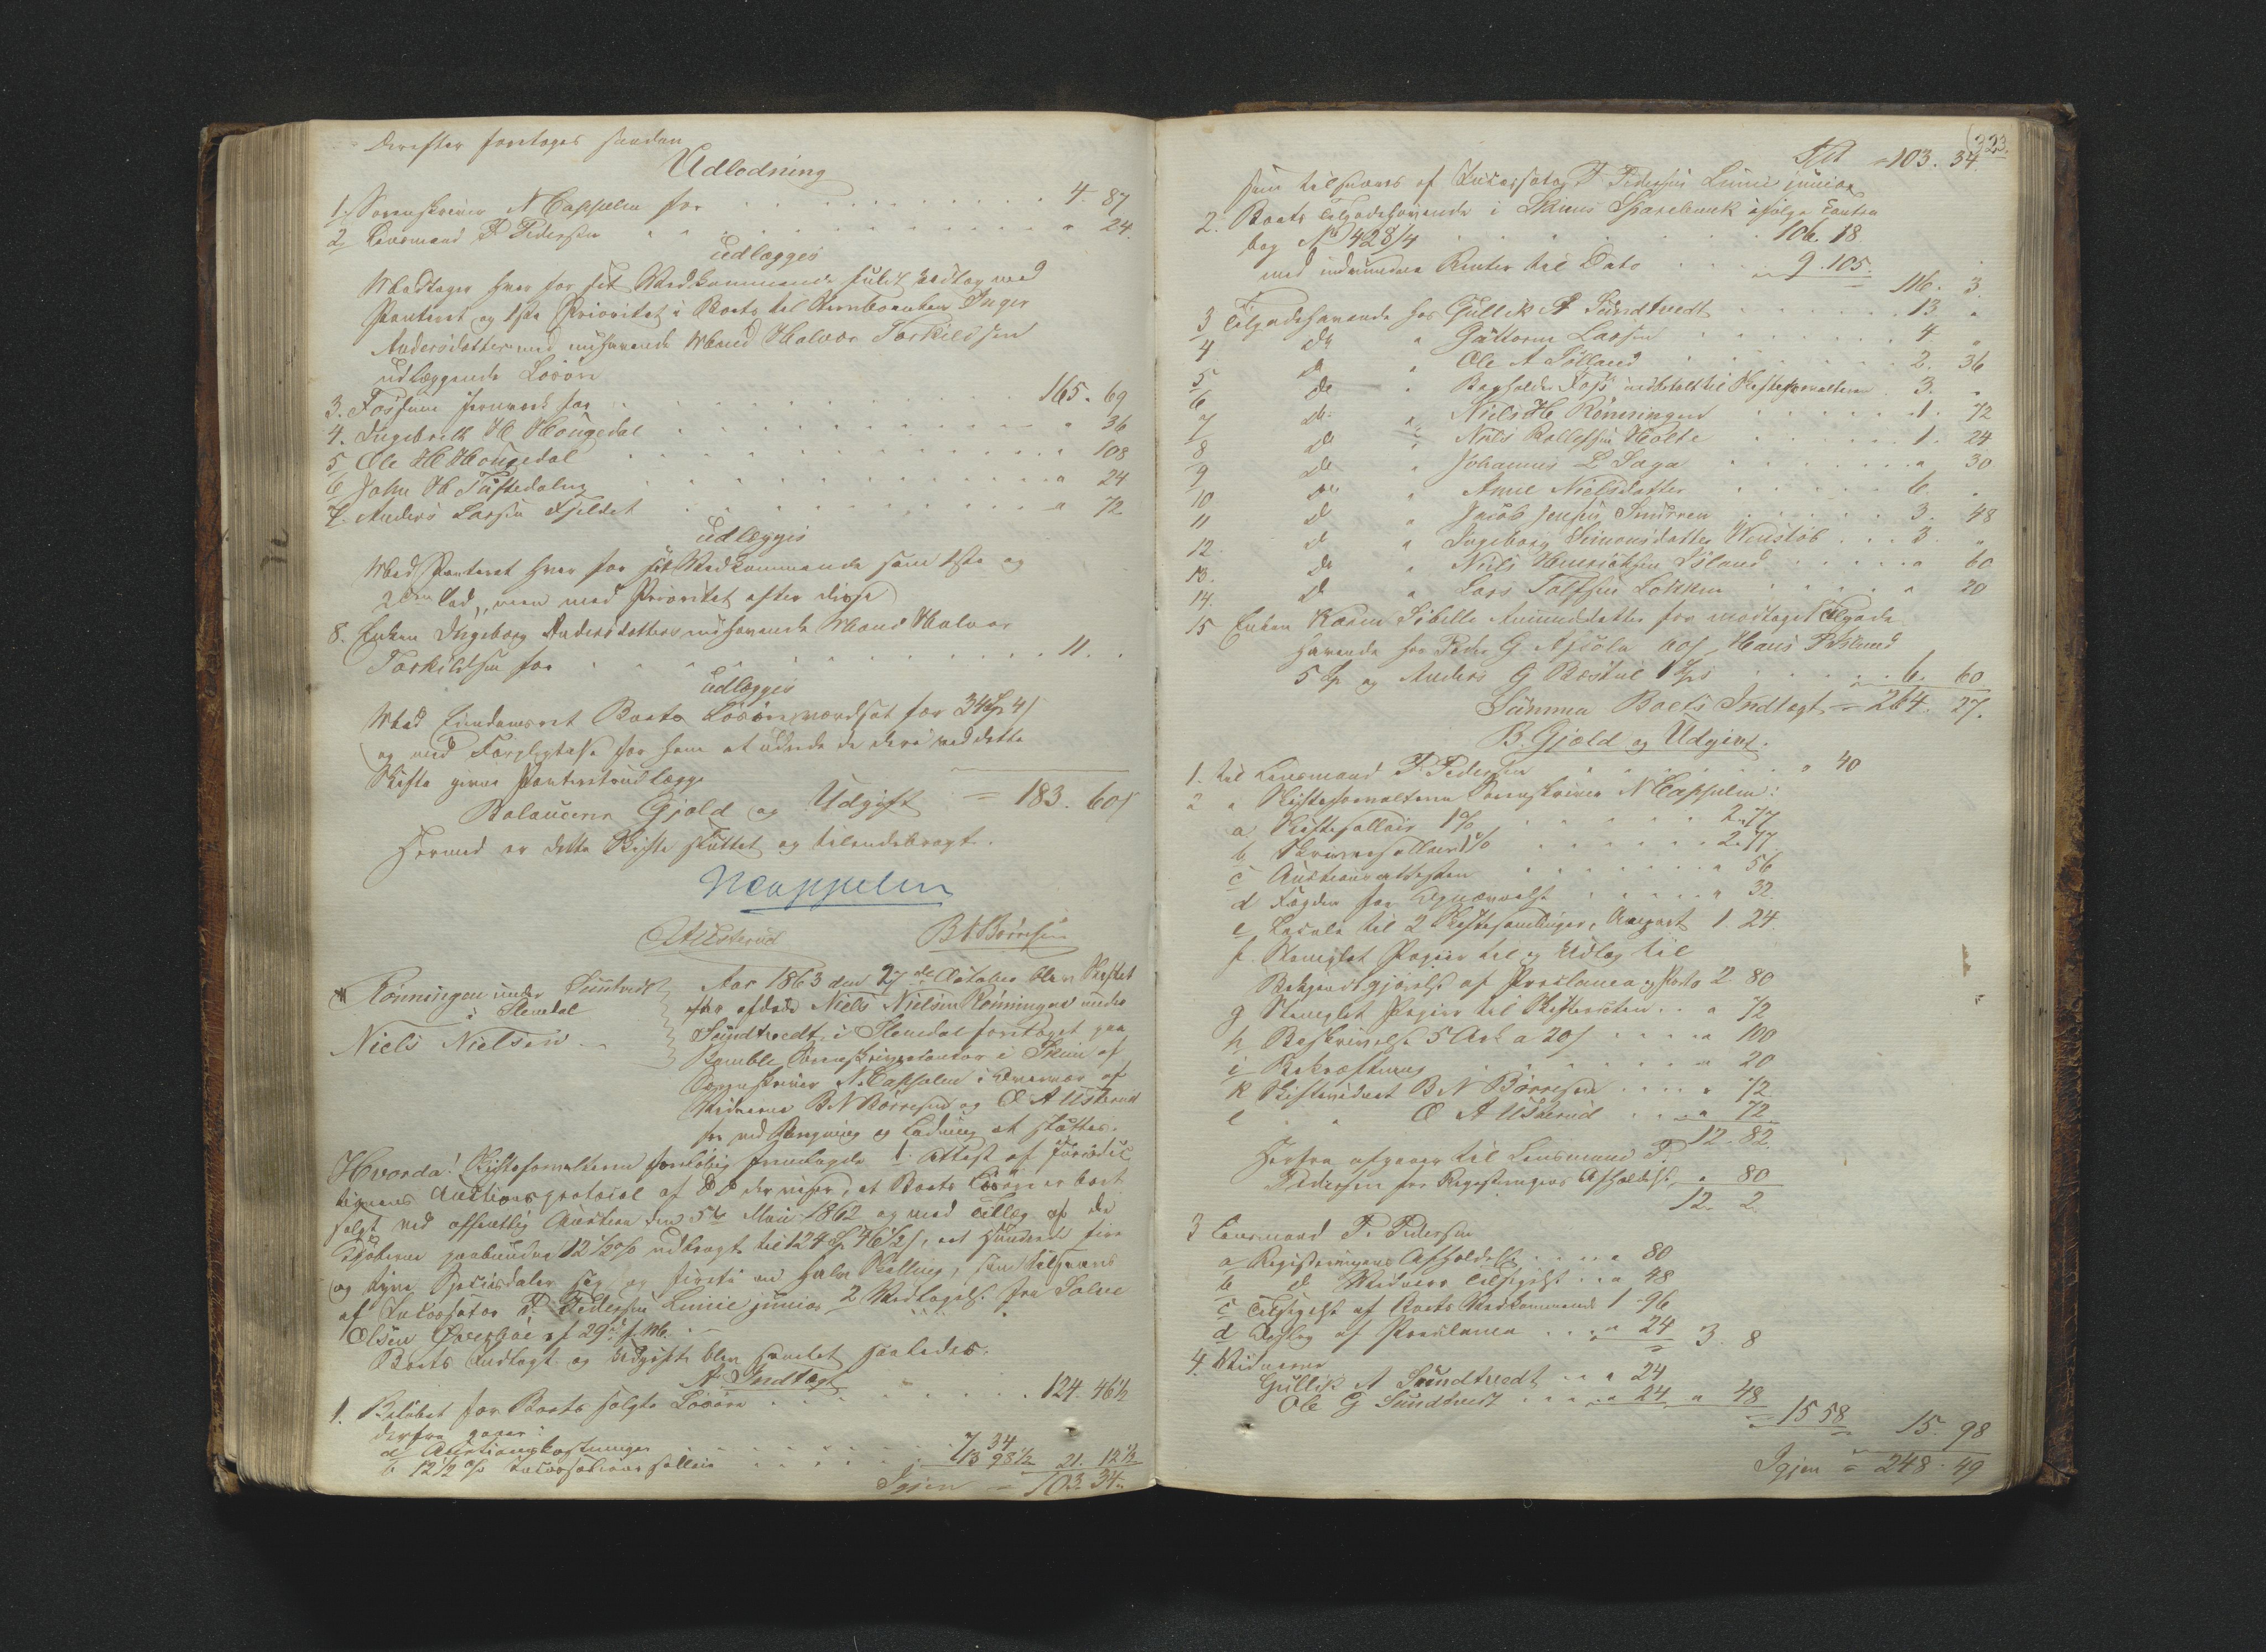 Derefter foretoges saadan
Udlodning
1. Sorenskriver N Cappelen for 4. 87
2. Lensmand P Pedersen " " 24.
udlægges
Modtager hver for sit Vedkommende
Panteret og 1ste Prioritet i Boets til Inger
Andersdatter med nuhavende Mand Halvor Torkildsen
udlæggende Løsøre
3. Fossum Jernverk for 165. 69
4. Ingebreth H Hougedal " 36
5. Ole H Hougedal " 108
6. John H Tuftedalen " 24
7. Anders Larsen Fjeldet " 72
udlægges
Med Panteret hver for sit Vedkommende som 1ste og
2den Lod, men med Prioritet efter disse
8. Enken Ingeborg Andersdatters nuhavende Mand Halvor
Torkildsen for 11. .
udlægges
Med Eiendomsret Boets Løsøre værdsat for 34 Sp 4 s
og med Forpligtelse for ham at udrede de deri ved dette
Skifte givne Panteretsudlægge
Balancerer Gjæld og Udgift = 183. 60 s
Hermed er dette Skifte sluttet og tilendebragt.
NCappelen
OAUsterud BNBørresen
Rønningen under Sundtvedt
i Slemdal
Niels Nielsen
Aar 1863 den 27de October blev Skiftet
efter afdøde Niels Nielsen Rønningen under
Sundtvedt i Slemdal foretaget paa
Bamble Sorenskrivercontor i Skien af
Sorenskriver N. Cappelen i Overvær af
Vidnerne B N Børresen og O A Usterud
for ved Beregning og Lodning at sluttes.
Hvorda! Skifteforvalteren foreløbig fremlagde 1. Attest af Jurisdic
tionens Auctionsprotocol af D D der viser, at Boets Løsøre er bort
solgt ved offentlig Auction den 5te Mai 1862 og med Tillæg af de
Kjøberne paabudne 12 1/2 % udbragt til 124 Sp 46 1/2 s, et Hundrede fire
og tyve Speciesdaler sex og firti en halv Skilling, som tilsvares
af Incassator P. Pedersen Lunie junior 2 Vedtagelse fra Solve
Olsen Øverbøe af 29de f. M.
Boets Indtægt og Udgift blev saaledes:
A Indtægt
1. Beløbet for Boets solgte Løsøre 124. 46 1/2
derfra gaaer:
a Auctionsomkostninger 7 34
b 12 1/2 % Incassations sallair 13 98 1/2 21. 12 1/2
Igjen = 103. 34.
323.
Tr " 103. 34.
som tilsvares af Incassator P Pedersen Lunie junior
2. Boets Tilgodehavende i Skiens Sparebank ifølge Contra
bog No 428/4 106. 18
med indvundne Renter til Dato 9. 105.
116. 3
3 Tilgodehavende hos Gullik A Sundtvedt 13 "
4 Do " Guttorm Larsen 4. "
5 Do " Ole A Follaug 2. 36
6 Do " indbetalt til Skifteforvalteren 3. "
7 Do " Niels H Rønningen 1. 72
8 Do " Niels Rollefsen Holte 1. 24
9 Do " Johannes L Saga " 30
10 Do " Anne Nielsdatter 6. "
11 Do " Jacob Jensen Snurren 3. 48
12. Do " Ingeborg Simonsdatter Venstøb 3. "
13. Do " Niels Henriksen Island " 60
14. Do " Lars Tollefsen Løkken " 20
15 Enken Karen Sibille Amundsdatter for modtaget Tilgode
havende hos Peder G 60 s, Hans
5 Sp og Anders G Bøstul 1 Sp 6. 60
Summa Boets Indtægt = 264. 27.
B. Gjæld og Udgivt.
1. til Lensmand P. Pedersen " 40
2 " Skifteforvalteren Sorenskriver N Cappelen:
a Skiftesallair 1 % 2. 77
b Skriversallair 1 % 2. 77
c Auctionsattesten " 56
d Fogden for " 32
e Locale til 2 Skiftesamlinger, Avgivt 1 24
f. Stemplet Papir til og Udlæg til
Bekjendtgjørelse af Proclama og Porto 2 80
g Stemplet Papir til Skifteacten " 72
h Beskrivelse 5 Ark a 20 s " 100
i Bekræftning " 20
k Skiftevidnet B N Børresen " 72
l " O A Usterud " 72
12. 82.
Herfra afgaaer til Lensmand P.
Pedersen for Registreringens Afholdelse " 80
12 2
3 Lensmand P. Pedersen
a Registreringens Afholdelse " 80
b d Vidners Tilsigelse " 48
c Tilsigelse af Boets Vedkommende 1 96
d Opslag af Proclama " 24 3. 8
4. Vidnerne
Gullik A Sundtvedt " 24
Ole G Sundtvedt " 24 " 48
= 15 58 15. 98
Igjen = 248. 49